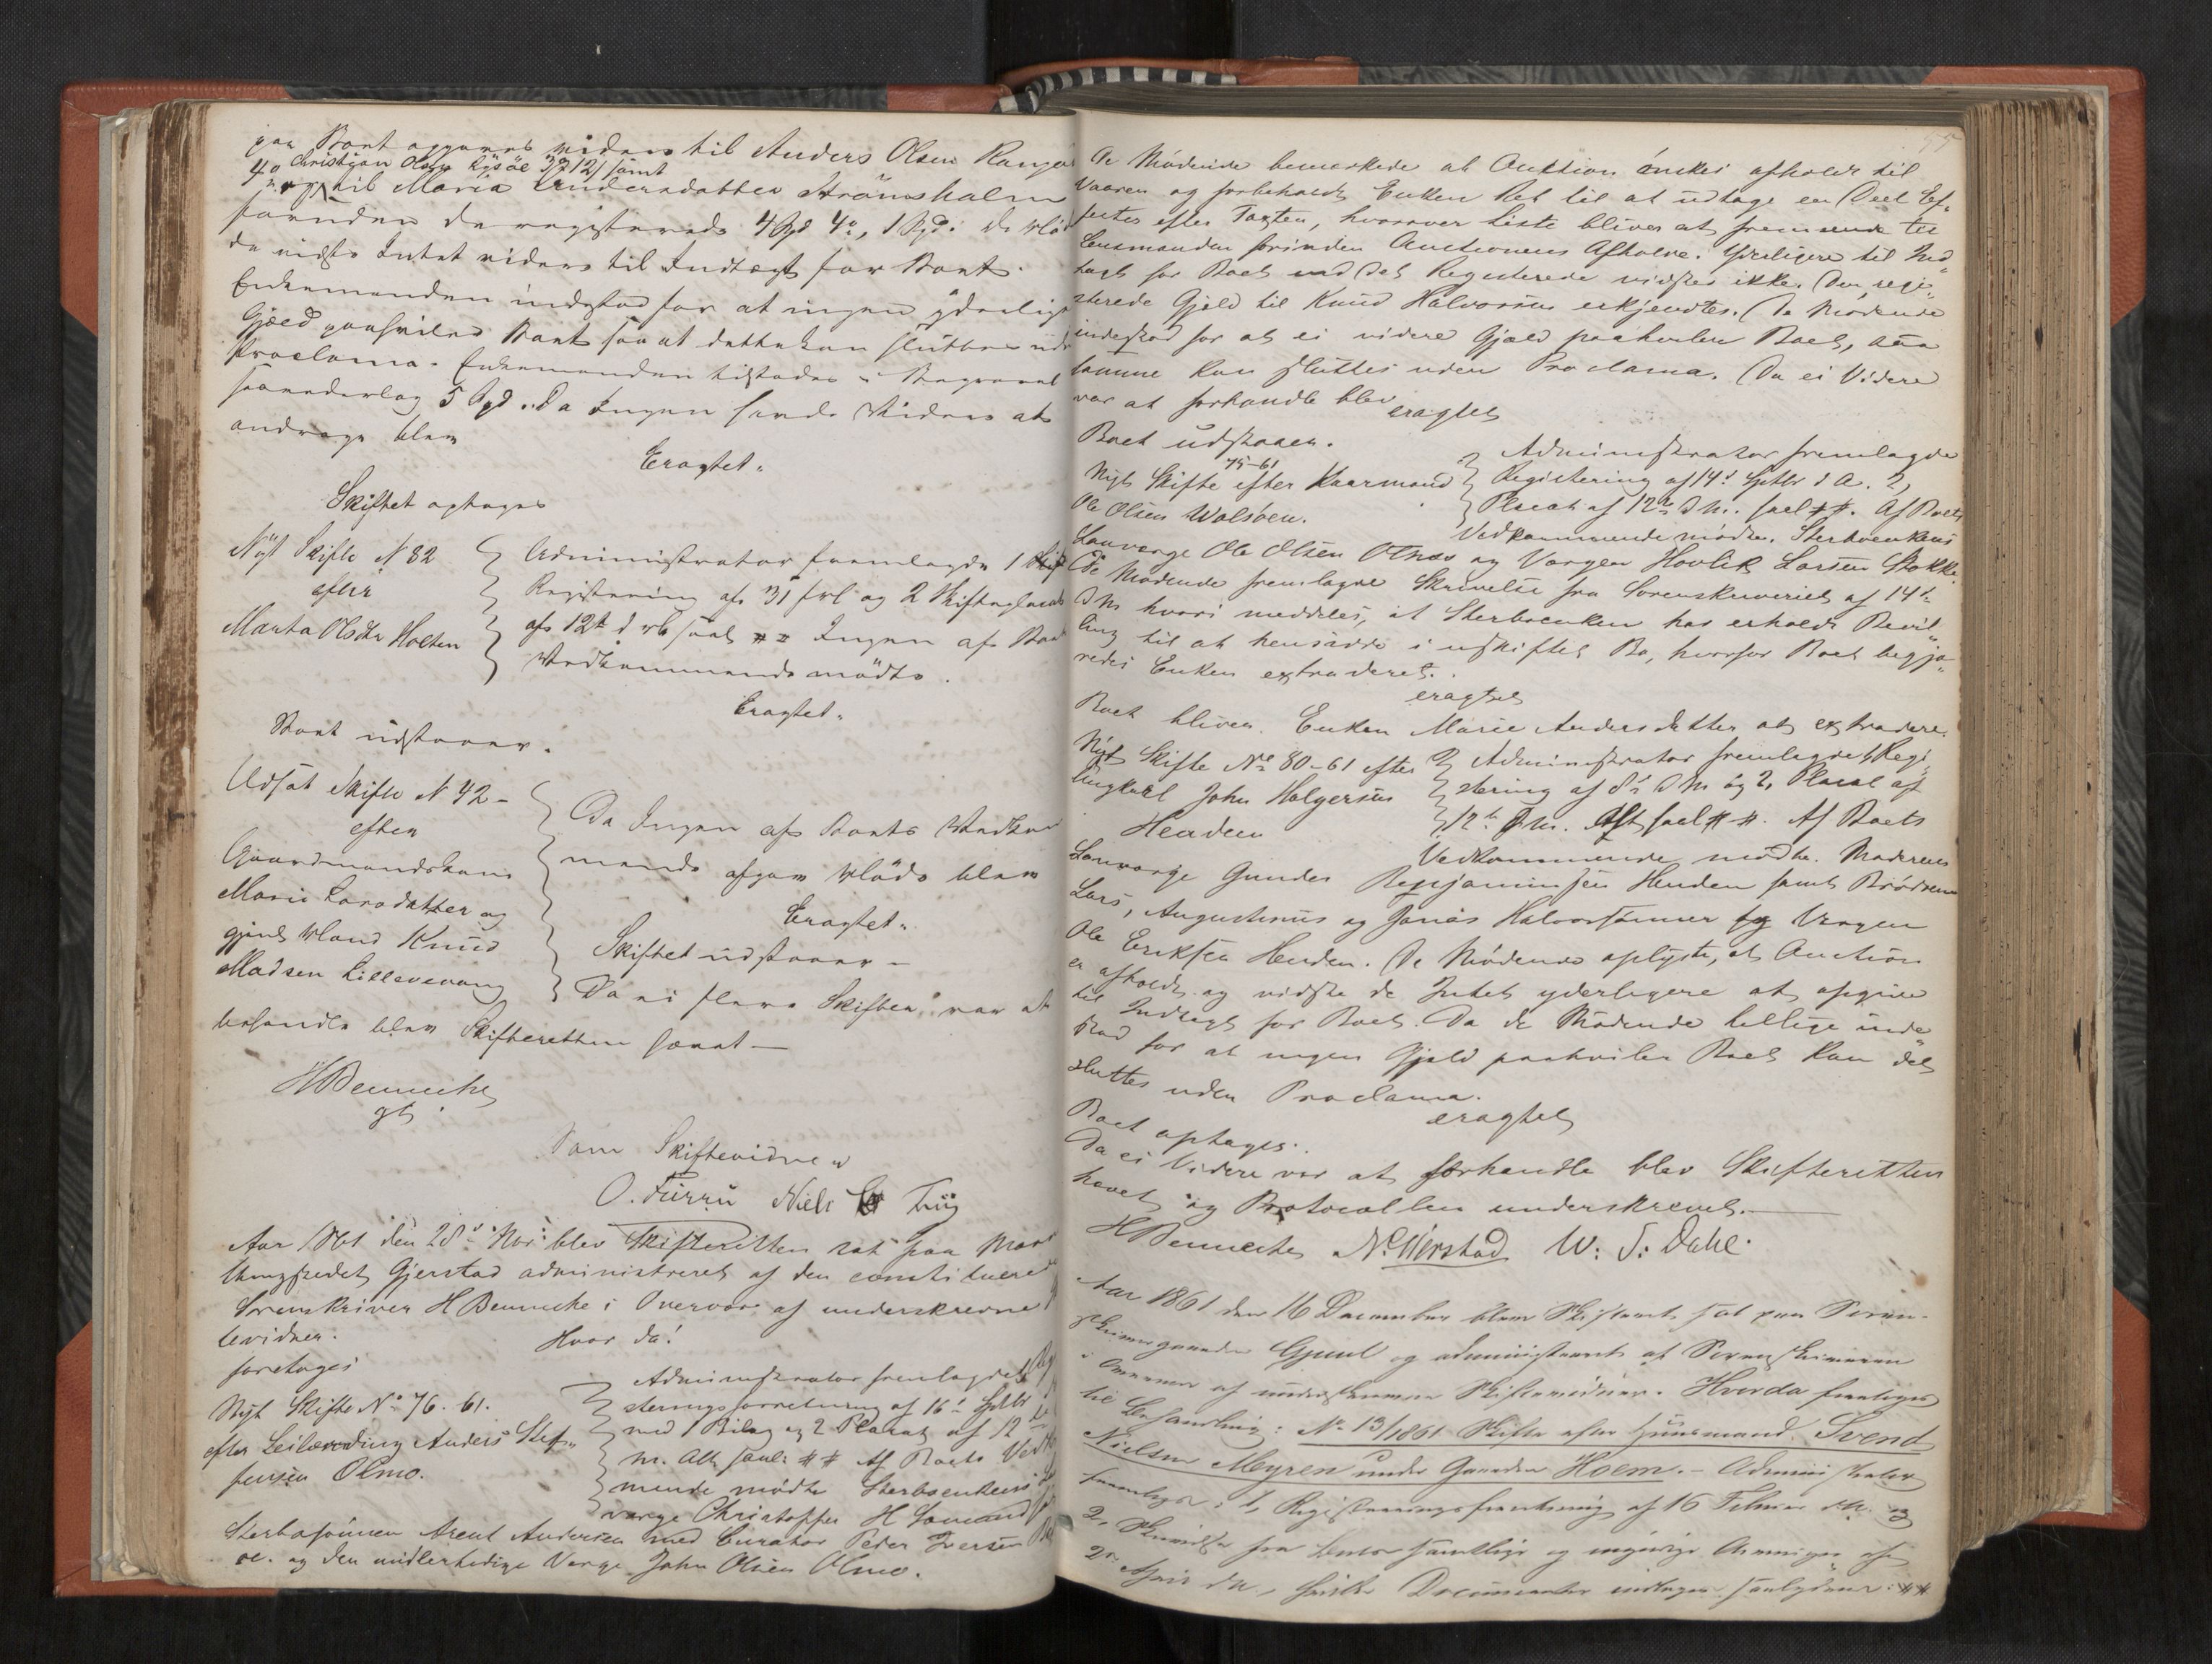 paa Boet opgaves videre til Anders Olsen
Christian Olsen 3 # 12/ samt
4° og til Maria Andersdatter Strömsholm
foruden de registerede 4 Spd 4°, 1 Spd. De
de vidste Intet videre til Indtægt for Boet.
Enkemanden indestod for at ingen yderlige
Gjæld paahviler Boet saa at dette kan sluttes
Proclama. Enkemanden tilstodes i Begravel
5 Spd. Da Ingen havde Videre at
andrage blev
Eragtet.
Skiftet optages
Nyt Skifte N 82
efter
Marta Olsdtr Holten
Administrator fremlagde 1
Registrering af 31 og 2 Skifteplacat
af 12t Ingen af
Vedkommende mødte.
Eragtet.
Boet udstaaer.
Udsat Skifte N 42 -
efter
Gaardmandskone
Marie Larsdatter og
gjenl Mand Knud
Madsen Lillevevang
Da Ingen af Boets Vedkom
mende afgav Møde blev
Eragtet.
Skiftet udstaaer -
Da ei flere Skifter var at
behandle blev Skifteretten hævet -
H Bennecke
gb
Som Skiftevidner
O. Furru Niels Trüg
Aar 1861 den 28de Nov: blev Skifteretten sat paa
thingstedet Gjerstad administreret af den constituerede
Sorenskriver H Bennecke i Overvær af underskrevne
levidner.
Hvor da!
foretages
Nyt Skifte No 76. 61.
efter Leilænding Anders Stef-
fensen Olmo.
Administrator fremlagde 1
steringsforretning af 16de Septbr
med 1 Bilag og 2 Placat af 12
m. Alt saal: ## Af Boets
mende mødte Sterboenkens
værge Christopher H
Sterbosönnen Arent Andersen med Curator Peder Iversen
og den midlertidige Værge John Olsen Olmo.
De Mödende bemærkede at Auction önskes afholdt til
Vaaren og forbeholdt Enken Ret til at udtage en Deel Ef-
fecter efter Taxten, hvorover Liste bliver at fremsende til
Lensmanden forinden Auctionens Afholde. Yderligere til Ind
tægt for Boet end det Registerede vidstes ikke. Den regi-
sterede Gjeld til Knud Halvorsen erkjendtes. De Mödende
indestod for at ei videre Gjæld paahviler Boet, saa
samme kan sluttes uden Proclama. Da ei Videre
var at forhandle blev
eragtet
Boet udstaaer.
75-61
Nyt Skifte efter Kaarmand
Ole Olsen Walsöen.
Administrator fremlagde
Registering af 14de Septbr d A. 2,
Placat af 12te d M. saal ##. Af Boets
Vedkommende mødte. Sterboenkens
Laugværge Ole Olsen og Værgen Hovlik Larsen Stokke
De Mödende fremlagde Skrivelse fra Sorenskriveriet af 14de
d M hvori meddeles, at Sterboenken har erholdt Bevil
ling til at hensidde i uskiftet Bo, hvorfor Boet begjæ-
redes Enken extraderet.
eragtet
Boet bliver Enken Marie Andersdatter at extradere.
Nyt Skifte No 80-61 efter
Ungkarl John Halgersen
Henden
Administrator fremlagde 1, Regi
stering af 8de d M og 2, Placat af
12te d M. Alt saal ##. Af Boets
Vedkommende mødte. Moderens
Laugværge Gunder Benjaminsen Henden samt Brödrene
Lars, Augustinus og Jonas Halvorsønner og Værgen
Ole Eriksen Henden. De Mödende oplyste, at Auction
er afholdt og vidste de Intet yderligere at opgive
til Indtægt for Boet. Da de Mödende tillige inde
stod for at ingen Gjæld paahviler Boet kan det
sluttes uden Proclama.
eragtet
Boet optages.
Da ei Videre var at forhandle blev Skifteretten
hævet og Protocollen underskrevet.
H Bennecke N. Wirstad W: S: Dahl.
Aar 1861 den 16 December blev Skifteret sat paa Soren-
skrivergaarden Gjuul og administreret af Sorenskriveren
i Overvær af underskrevne Skiftevidner. Hvorda foretoges
til Behandling: No 13/1861 Skifte efter Huusmand Svend
Nielsen Myren under Gaarden Hoem. - Administrator
fremlagde: 1, Registreringsforretning af 16 Februar d.A.
2, Skrivelse fra samtlige og myndige Arvinger af
2de April d A, hvilke Documenter indtages saalydende: ##